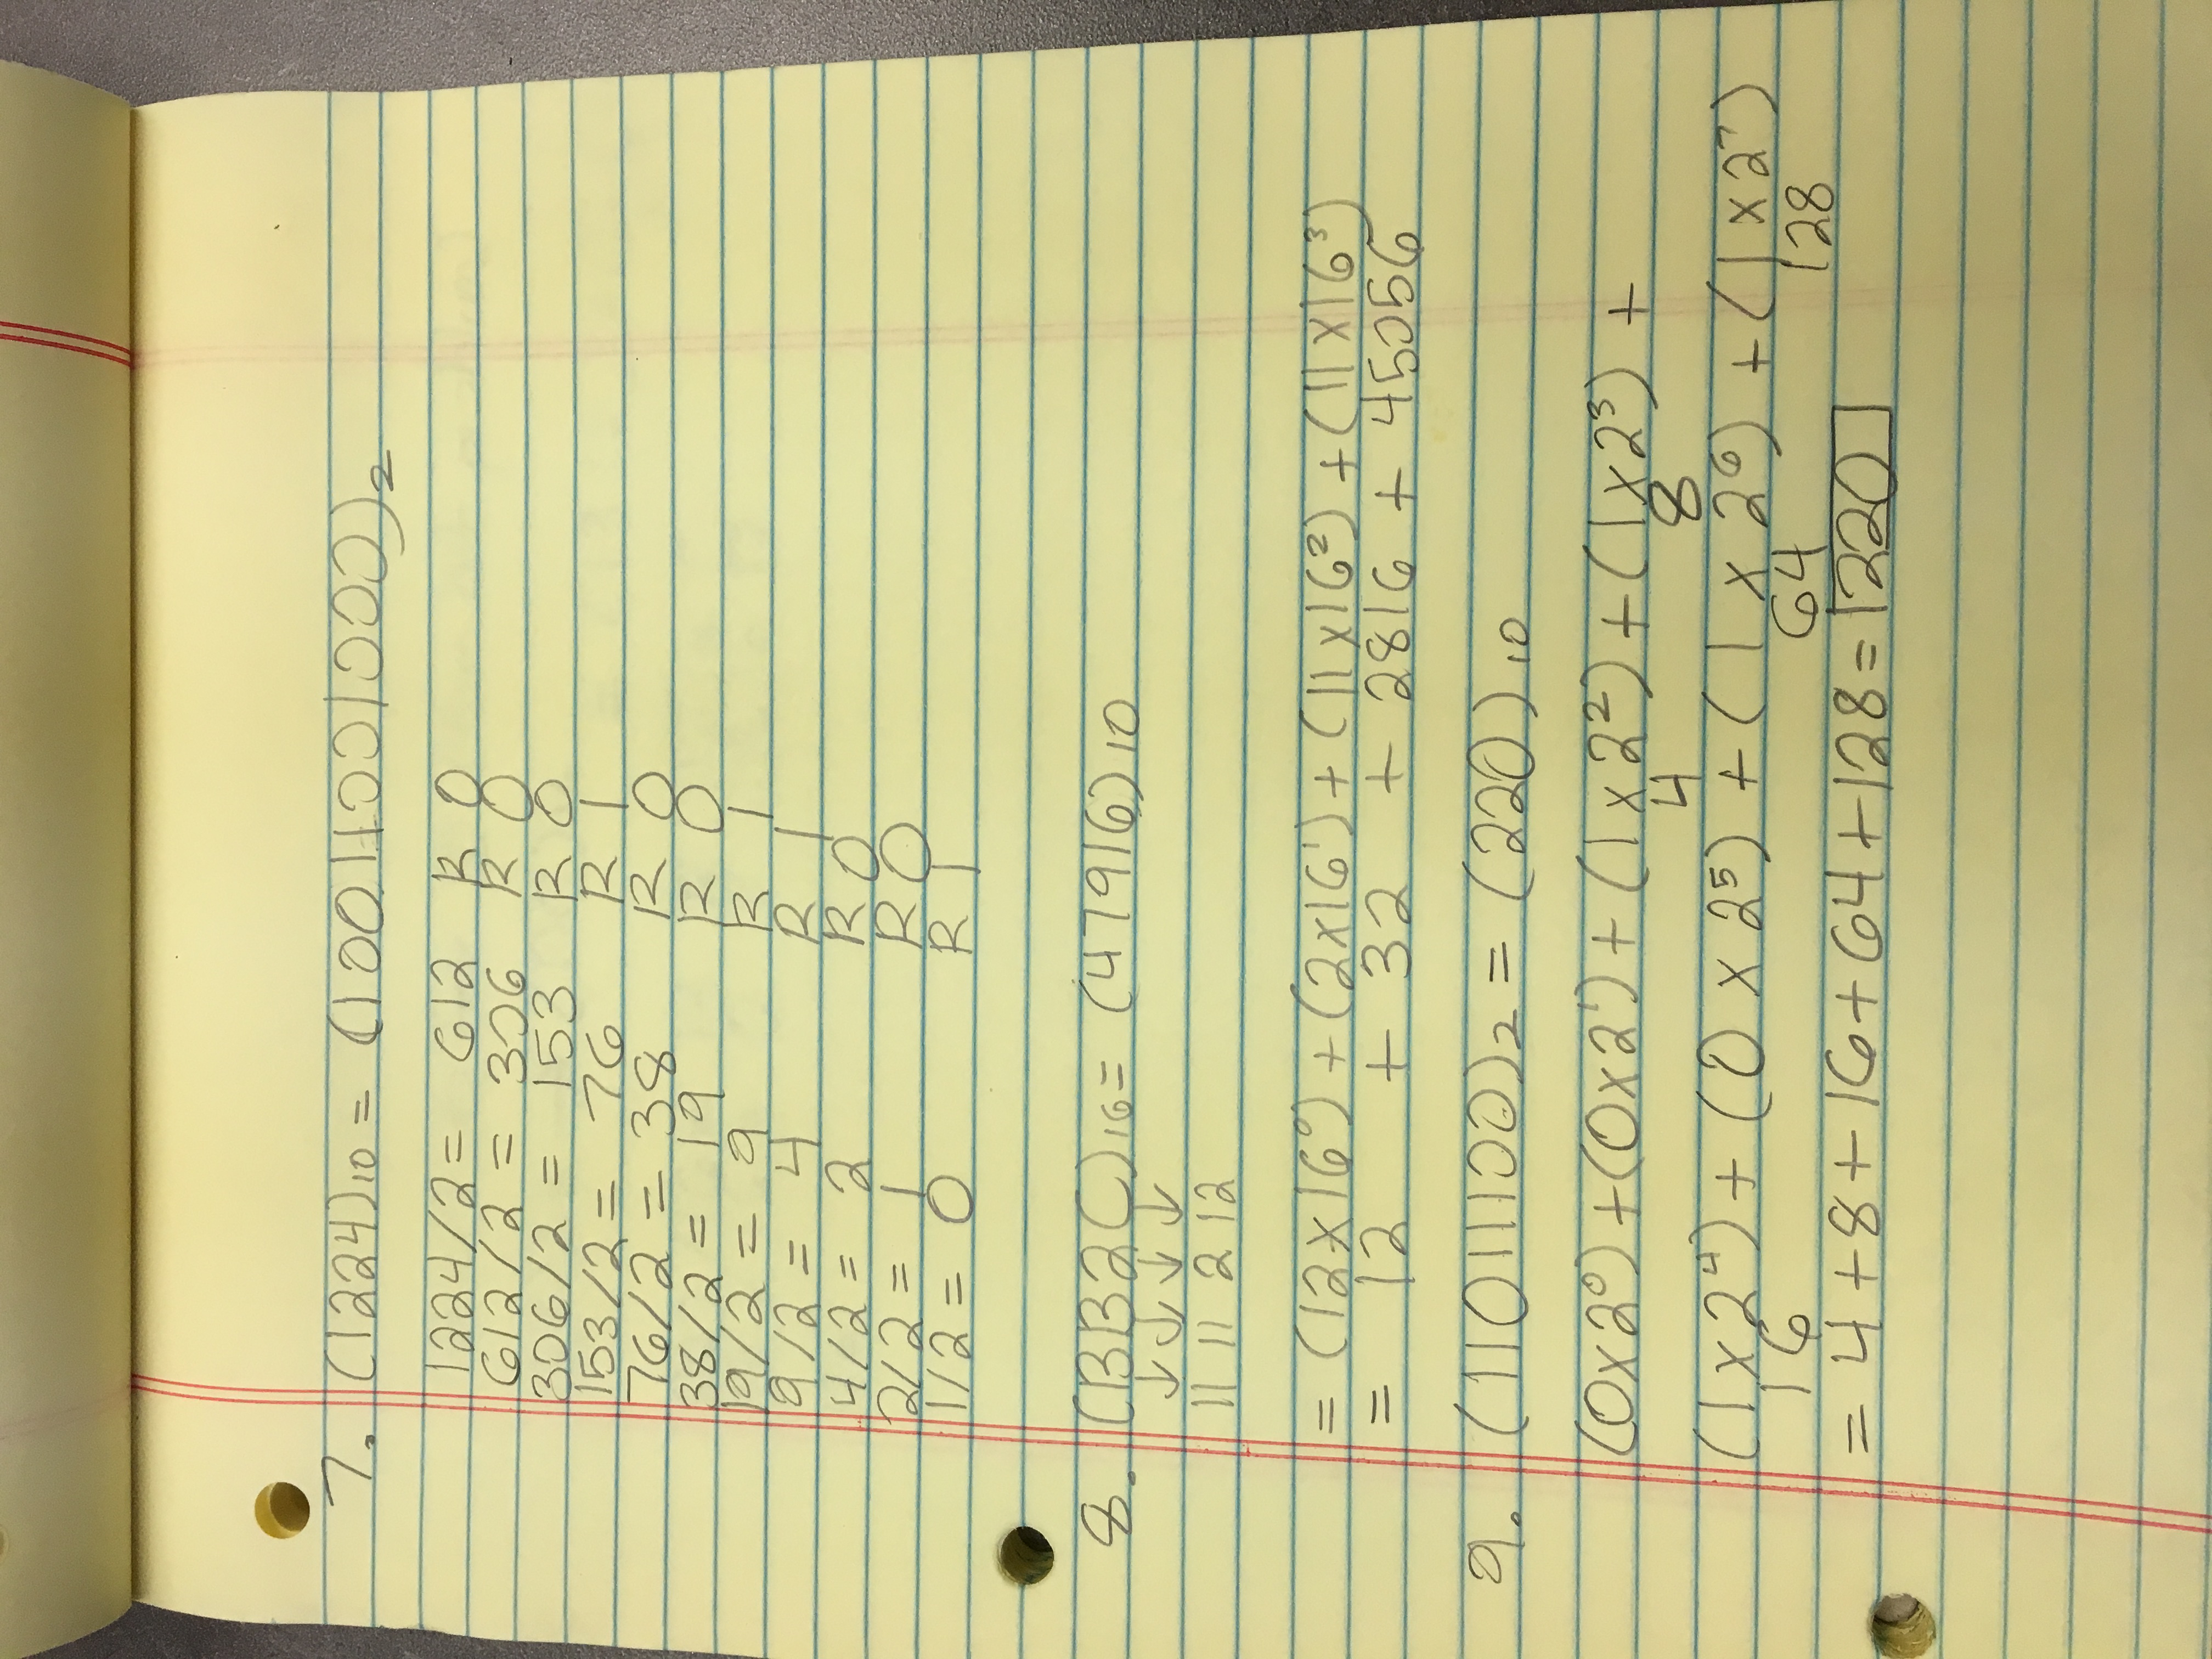 7. (1224)10 = (10011001000)2
1224/2 = 612 R 0
612/2 = 306 R 0
306/2 = 153 R 0
153/2 = 76 R 1
76/2 = 38 R 0
38/2 = 19 R 0
19/2 = 9 R 1
9/2 = 4 R 1
4/2 = 2 R 0
2/2 = 1 R 0
1/2 = 0 R 1
8. (BB2C)16 = (47916)10
↓ ↓ ↓ ↓
11 11 2 12
= (12x16⁰) + (2x16¹) + (11x16²) + (11x16³)
= 12 + 32 + 2816 + 45056
9. (11011100)2 = (220)10
(0x2⁰) + (0x2¹) + (1x2²) + (1x2³) +
4 8
(1x2⁴) + (0x2⁵) + (1x2⁶) + (1x2⁷)
16 64 128
= 4+8+16+64+128 = 220